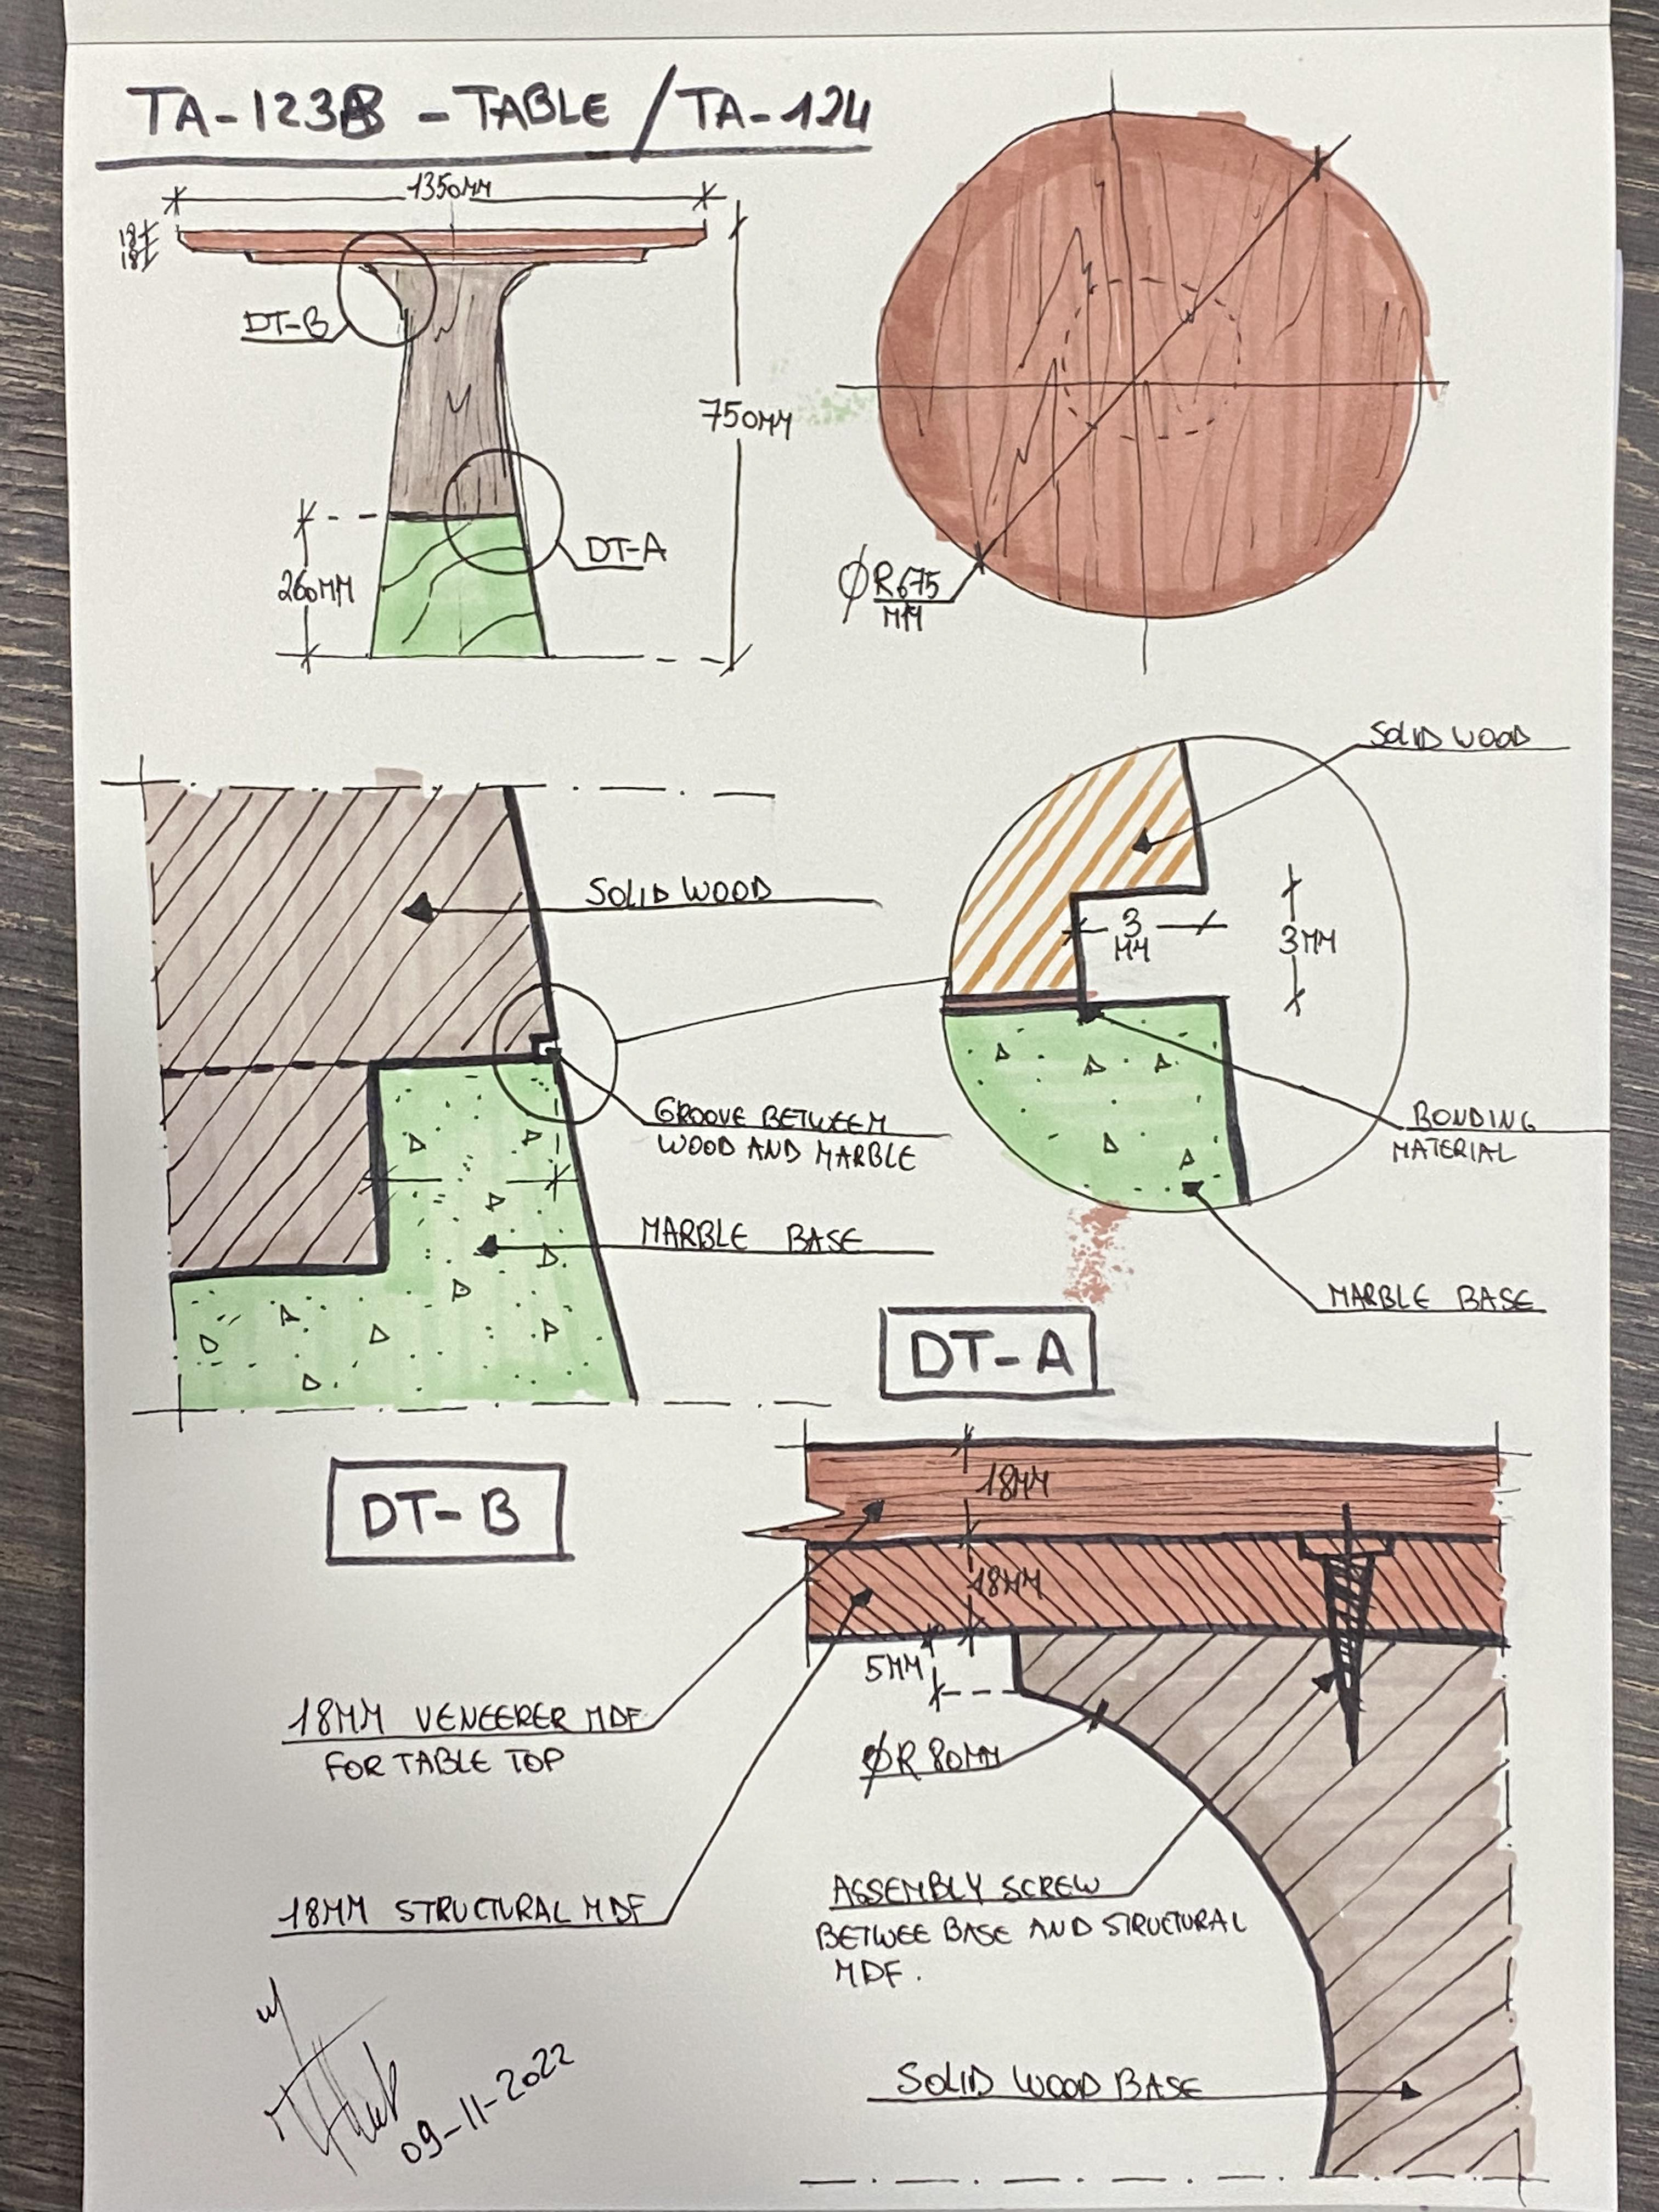 TA-123B - TABLE / TA-124
1350MM
18
18
DT-B
750MM
DT-A
260MM
ØR675
MM
SOLID WOOD
SOLID WOOD
3
MM
3MM
GROOVE BETWEEN
WOOD AND MARBLE
BONDING
MATERIAL
MARBLE BASE
MARBLE BASE
DT-A
DT-B
18MM
18MM
5MM
18MM VENEERER MDF
FOR TABLE TOP
ØR 80MM
18MM STRUCTURAL MDF
ASSEMBLY SCREW
BETWEE BASE AND STRUCTURAL
MDF.
SOLID WOOD BASE
09-11-2022